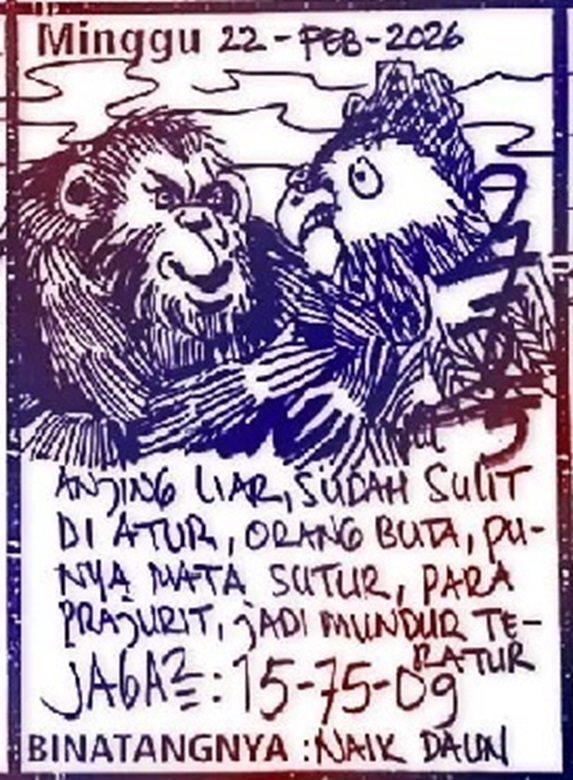 Minggu 22-FEB-2026
ANJING LIAR, SUDAH SULIT
DI ATUR, ORANG BUTA, PU-
NYA MATA SUTUR, PARA
PRAJURIT, JADI MUNDUR TE-
RATUR
JAGA2 : 15-75-09
BINATANGNYA : NAIK DAUN